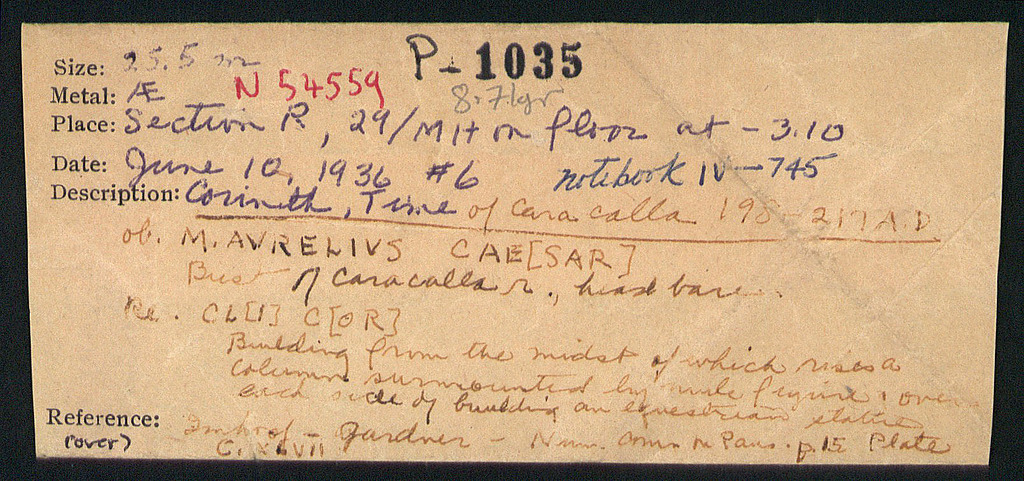 P-1035
Size: 25.5 m
Metal: Æ N 54559 8.71gr
Place: Section P., 29/MH on floor at -3.10
Date: June 10, 1936 #6 notebook IV-745
Description: Corinth, Time of Caracalla 198-217 A.D
ob. M.AVRELIVS CAE[SAR]
Bust of Caracalla r., head bare.
Re. CL[I] C[OR]
Building from the midst of which rises a
column surmounted by nude figure; over
each side of building an equestrian statue
Reference: Imhoof - Gardner - Num. Comm. on Paus. p.15 Plate
(over) C. XLVII